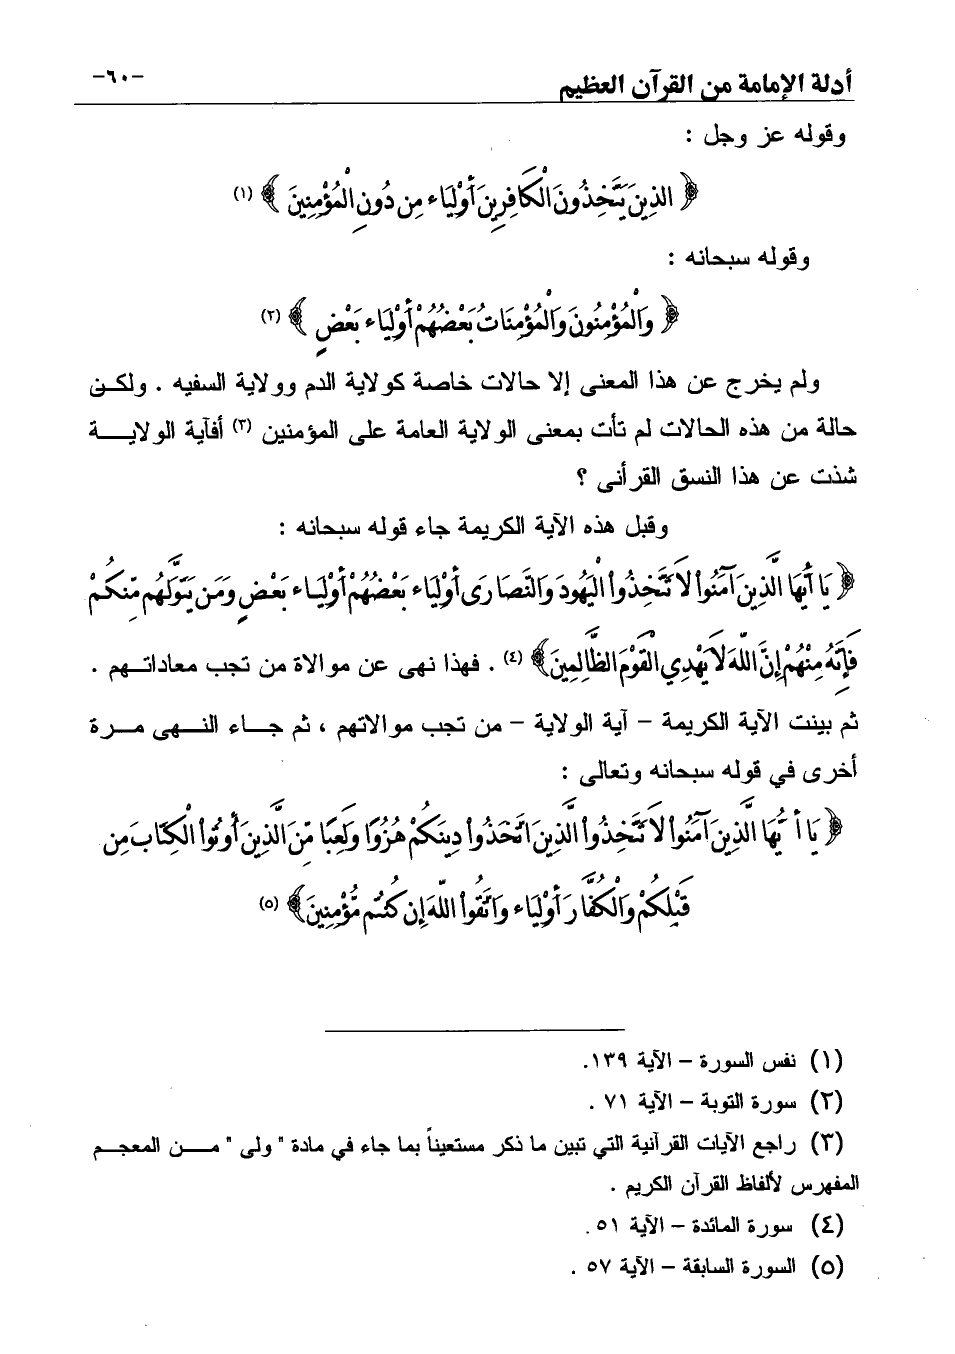 أدلة الإمامة من القرآن العظيم -٦٠-
وقوله عز وجل :
﴿ الَّذِينَ يَتَّخِذُونَ الْكَافِرِينَ أَوْلِيَاء مِن دُونِ الْمُؤْمِنِينَ ﴾ (١)
وقوله سبحانه :
﴿ وَالْمُؤْمِنُونَ وَالْمُؤْمِنَاتُ بَعْضُهُمْ أَوْلِيَاء بَعْضٍ ﴾ (٢)
ولم يخرج عن هذا المعنى إلا حالات خاصة كولاية الدم وولاية السفيه . ولكن
حالة من هذه الحالات لم تأت بمعنى الولاية العامة على المؤمنين (٣) أفآية الولاية
شذت عن هذا النسق القرأنى ؟
وقبل هذه الآية الكريمة جاء قوله سبحانه :
﴿ يَا أَيُّهَا الَّذِينَ آمَنُواْ لاَ تَتَّخِذُواْ الْيَهُودَ وَالنَّصَارَى أَوْلِيَاء بَعْضُهُمْ أَوْلِيَاء بَعْضٍ وَمَن يَتَوَلَّهُم مِّنكُمْ
فَإِنَّهُ مِنْهُمْ إِنَّ اللّهَ لاَ يَهْدِي الْقَوْمَ الظَّالِمِينَ ﴾ (٤) . فهذا نهى عن موالاة من تجب معاداتهم .
ثم بينت الآية الكريمة – آية الولاية – من تجب موالاتهم ، ثم جاء النهى مرة
أخرى في قوله سبحانه وتعالى :
﴿ يَا أَيُّهَا الَّذِينَ آمَنُواْ لاَ تَتَّخِذُواْ الَّذِينَ اتَّخَذُواْ دِينَكُمْ هُزُوًا وَلَعِبًا مِّنَ الَّذِينَ أُوتُواْ الْكِتَابَ مِن
قَبْلِكُمْ وَالْكُفَّارَ أَوْلِيَاء وَاتَّقُواْ اللّهَ إِن كُنتُم مُّؤْمِنِينَ ﴾ (٥)
(١) نفس السورة – الآية ١٣٩.
(٢) سورة التوبة – الآية ٧١ .
(٣) راجع الآيات القرآنية التي تبين ما ذكر مستعيناً بما جاء في مادة " ولى " من المعجم
المفهرس لألفاظ القرآن الكريم .
(٤) سورة المائدة – الآية ٥١ .
(٥) السورة السابقة – الآية ٥٧ .